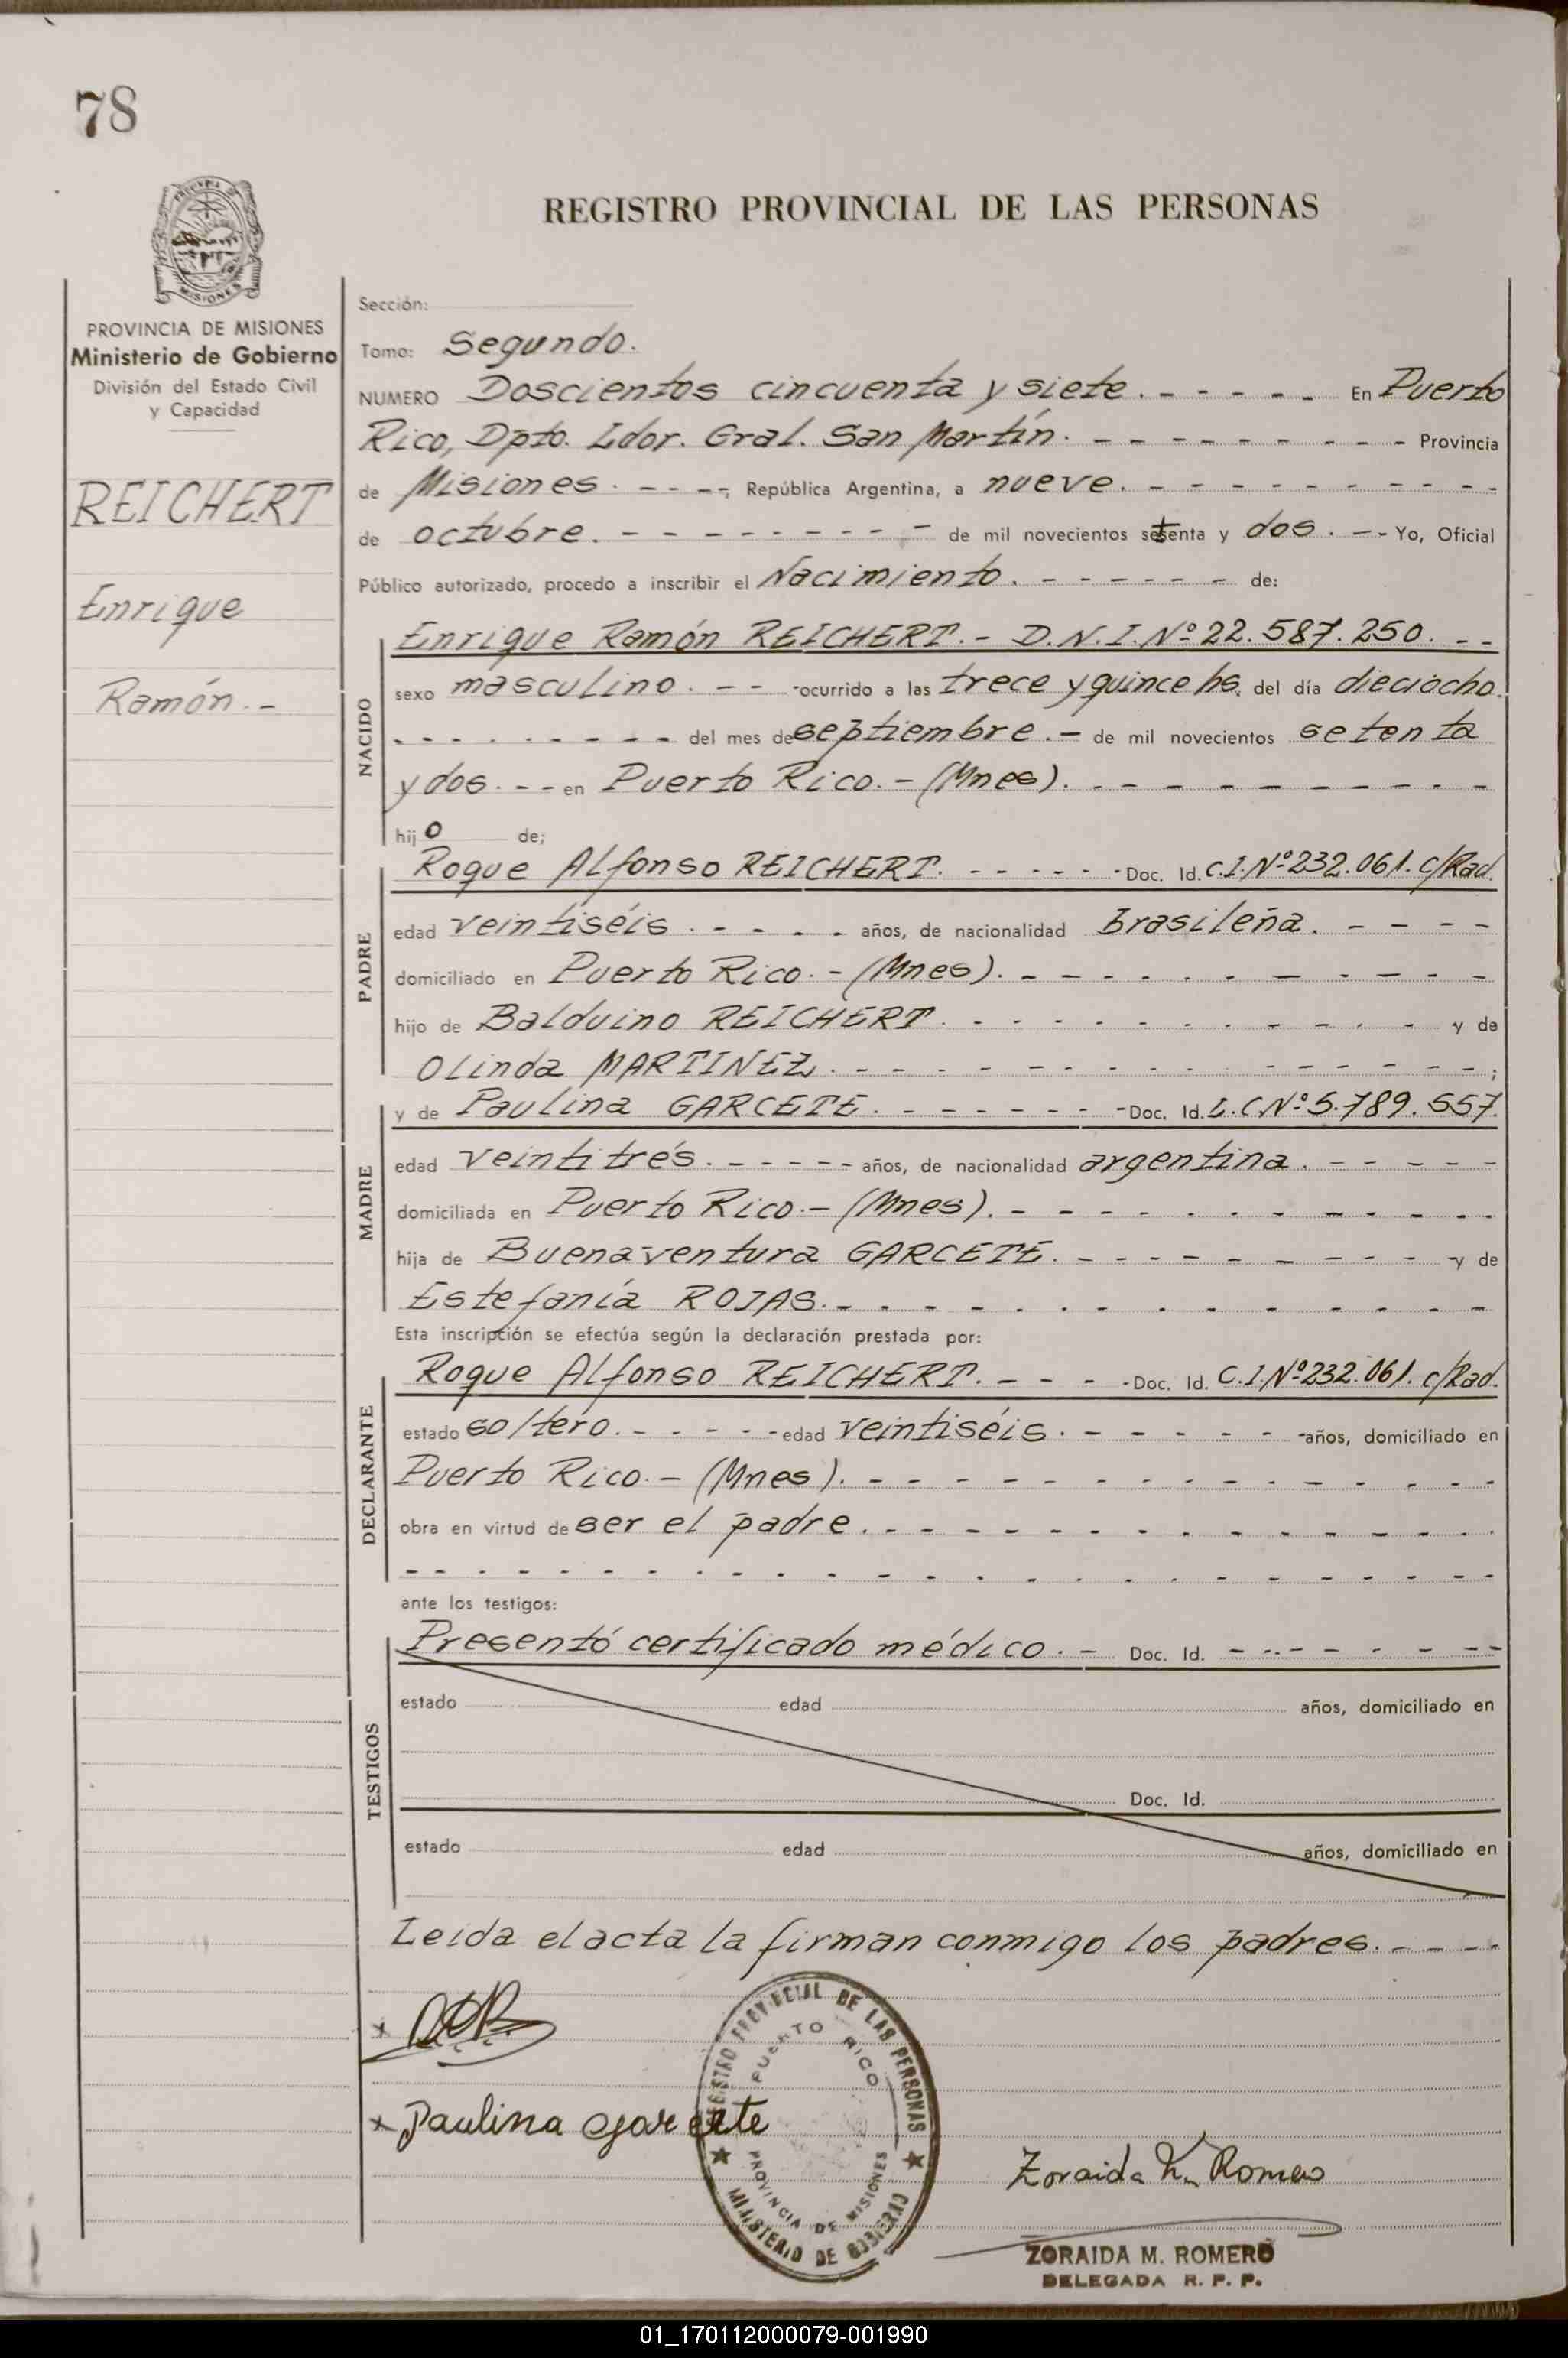 78
PROVINCIA DE MISIONES
REGISTRO PROVINCIAL DE LAS PERSONAS
PROVINCIA DE MISIONES
Ministerio de Gobierno
División del Estado Civil
y Capacidad
REICHERT
Enrique
Ramón.-
Sección:
Tomo: Segundo.
NUMERO Doscientos cincuenta y siete. - - - - - En Puerto
Rico, Dpto. Ldor. Gral. San Martín. - - - - - - - - - Provincia
de Misiones. - - - -, República Argentina, a nueve. - - - - - - - - - -
de octubre. - - - - - - - - - de mil novecientos setenta y dos. - - Yo, Oficial
Público autorizado, procedo a inscribir el Nacimiento. - - - - - - de:
NACIDO
Enrique Ramón REICHERT. - D.N.I. Nº 22.587.250. - -
sexo masculino. - - - ocurrido a las trece y quince hs. del día dieciocho.
- - - - - - - - - del mes de septiembre. - de mil novecientos setenta
y dos. - - en Puerto Rico. - (Mnes). - - - - - - - - - -
hijo de;
PADRE
Roque Alfonso REICHERT. - - - - - Doc. Id. C.I. Nº 232.061. c/Rad.
edad veintiséis. - - - - años, de nacionalidad brasileña. - - - -
domiciliado en Puerto Rico. - (Mnes). - - - - - - - - - - -
hijo de Balduino REICHERT. - - - - - - - - - - - y de
Olinda MARTINEZ. - - - - - - - - - - - - - - - ;
MADRE
y de Paulina GARCETE. - - - - - - - Doc. Id. L.C Nº 5.789.557.
edad veintitrés. - - - - - años, de nacionalidad argentina. - - - - -
domiciliada en Puerto Rico. - (Mnes). - - - - - - - - - - -
hija de Buenaventura GARCETE. - - - - - - - - - y de
Estefanía ROJAS. - - - - - - - - - - - - - - -
Esta inscripción se efectúa según la declaración prestada por:
DECLARANTE
Roque Alfonso REICHERT. - - - - Doc. Id. C.I. Nº 232.061. c/Rad.
estado soltero. - - - - - edad veintiséis. - - - - - - años, domiciliado en
Puerto Rico. - (Mnes). - - - - - - - - - - - - - - -
obra en virtud de ser el padre. - - - - - - - - - - - - - -
- - - - - - - - - - - - - - - - - - - - - - -
ante los testigos:
TESTIGOS
Presentó certificado médico. - Doc. Id. - - - - - - - -
estado edad años, domiciliado en
Doc. Id.
estado edad años, domiciliado en
Leida el acta la firman conmigo los padres. - - - -
x
x Paulina Garcete
REGISTRO PROVINCIAL DE LAS PERSONAS
PUERTO RICO
PROVINCIA DE MISIONES
MINISTERIO DE GOBIERNO
Zoraida M. Romero
ZORAIDA M. ROMERO
DELEGADA R. P. P.
01_170112000079-001990